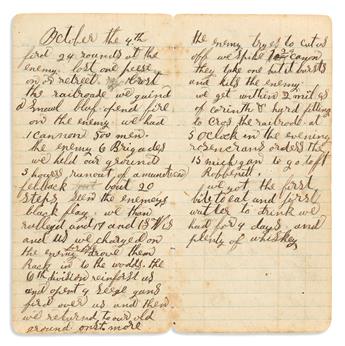 October the 4th
fird 24 rounds at the
enemy. lost one peese
on of retreet Crost
the railroade we gaind
a smawl bluf opend fire
on the enemy we had
1 cannon 500 men.
the enemy 6 Brigades
we held our ground
3 howers runout of amunition
fellback bout 20
steps seen the enemeys
black flag. we then
rallyed and 17 and 13 Wis
and us we charged on
the enemy drove them
back in to the woods. the
6th division reinforst us
and opent 4 seege guns
fird over us and then
we returned to our old
ground onst more
the enemy tryes to cut us
off we spike 1 24 canon
they take one it bursts
and kills the enemy
we get within 2 miles
of corinth & hard fiting
to Cros the railroade at
5 Oclock in the evening
rosencrans orders the
15 michgan to go left
Robbenett.
we got the first
bite to eat and first
watter to drink we
had for 4 days and
plenty of whiskey